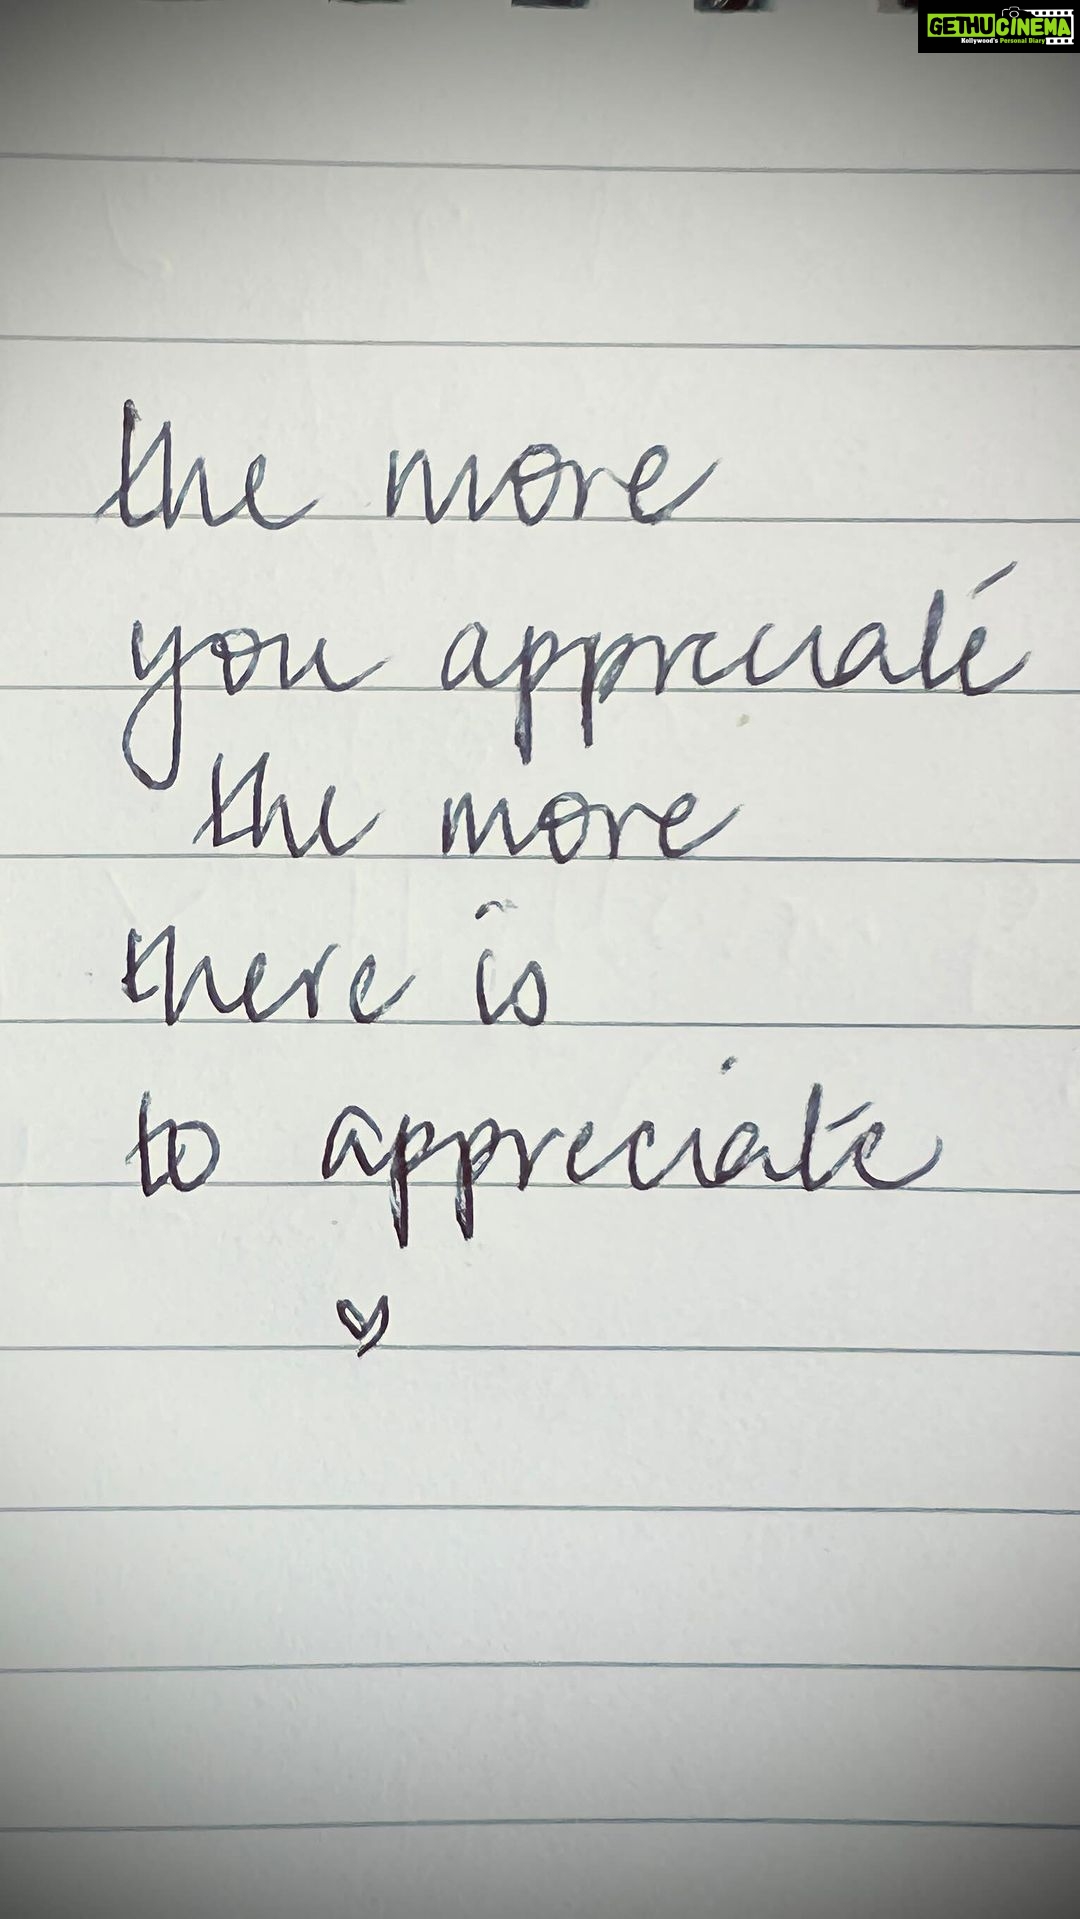 GETHUCINEMA
Kollywood's Personal Diary
the more
you appreciate
the more
there is
to appreciate